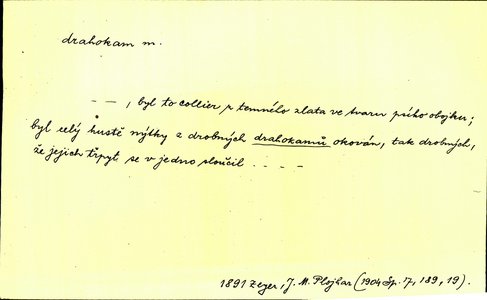 drahokam m.
– – , byl to collier z temného zlata ve tvaru psího obojku;
byl celý hustě nýtky z drobných drahokamů okován, tak drobných,
že jejich třpyt se v jedno sloučil . – – –
1891 Zeyer, J. M. Plojhar (1904 Sp. 7, 189, 19).